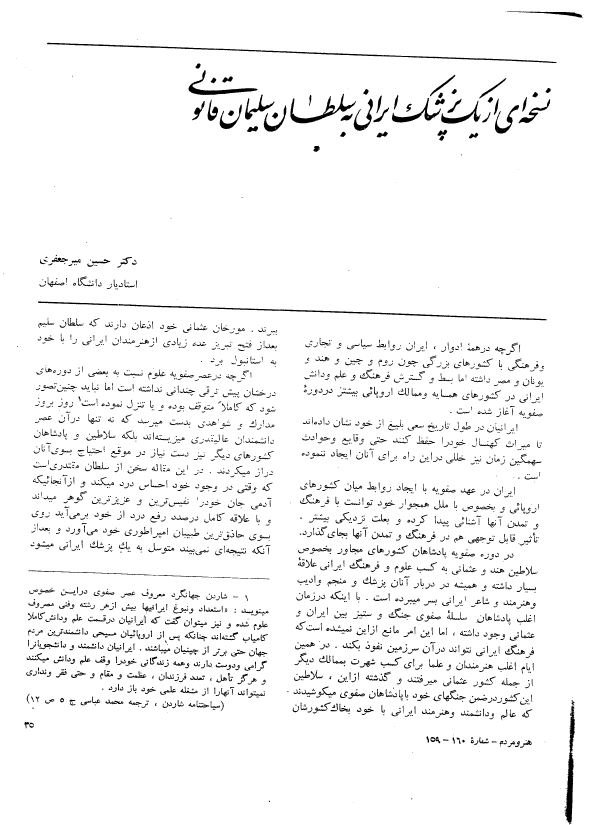 نسخه‌ای از یک پزشک ایرانی به سلطان سلیمان قانونی
دکتر حسین میرجعفری
استادیار دانشگاه اصفهان
اگرچه درهمهٔ ادوار ، ایران روابط سیاسی و تجاری
وفرهنگی با کشورهای بزرگی چون روم و چین و هند و
یونان و مصر داشته اما بسط و گسترش فرهنگ و علم ودانش
ایرانی در کشورهای همسایه وممالك اروپائی بیشتر دردورهٔ
صفویه آغاز شده است .
ایرانیان در طول تاریخ سعی بلیغ از خود نشان داده‌اند
تا میراث کهنسال خودرا حفظ کنند حتی وقایع وحوادث
سهمگین زمان نیز خللی دراین راه برای آنان ایجاد ننموده
است .
ایران در عهد صفویه با ایجاد روابط میان کشورهای
اروپائی و بخصوص با ملل همجوار خود توانست با فرهنگ
و تمدن آنها آشنائی پیدا کرده و بعلت نزدیکی بیشتر .
تأثیر قابل توجهی هم در فرهنگ و تمدن آنها بجای‌گذارد.
در دوره صفویه پادشاهان کشورهای مجاور بخصوص
سلاطین هند و عثمانی به کسب علوم و فرهنگ ایرانی علاقهٔ
بسیار داشته و همیشه در دربار آنان پزشك و منجم وادیب
وهنرمند و شاعر ایرانی بسر میبرده است . با اینکه درزمان
اغلب پادشاهان سلسلهٔ صفوی جنگ و ستیز بین ایران و
عثمانی وجود داشته ، اما این امر مانع ازاین نمیشده است‌که
فرهنگ ایرانی نتواند درآن سرزمین نفوذ بکند . در همین
ایام اغلب هنرمندان و علما برای کسب شهرت بممالك دیگر
از جمله کشور عثمانی میرفتند و گذشته ازاین ، سلاطین
این‌کشوردرضمن جنگهای خود باپادشاهان صفوی میکوشیدند
که عالم ودانشمند وهنرمند ایرانی با خود بخاك‌کشورشان
ببرند . مورخان عثمانی خود اذعان دارند که سلطان سلیم
بعداز فتح تبریز عده زیادی ازهنرمندان ایرانی را با خود
به استانبول برد .
اگرچه درعصرصفویه علوم نسبت به بعضی از دوره‌های
درخشان پیش ترقی چندانی نداشته است اما نباید چنین‌تصور
شود که کاملاً متوقف بوده و یا تنزل نموده است۱ روز بروز
مدارك و شواهدی بدست میرسد که نه تنها درآن عصر
دانشمندان عالیقدری میزیسته‌اند بلکه سلاطین و پادشاهان
کشورهای دیگر نیز دست نیاز در موقع احتیاج بسوی‌آنان
دراز میکردند . در این مقاله سخن از سلطان مقتدری‌است
که وقتی در وجود خود احساس درد میکند و ازآنجائیکه
آدمی جان خودرا نفیس‌ترین و عزیزترین گوهر میداند
و با علاقه کامل درصدد رفع درد از خود برمی‌آید روی
بسوی حاذق‌ترین طبیبان امپراطوری خود می‌آورد و بعداز
آنکه نتیجه‌ای نمی‌بیند متوسل به یك پزشك ایرانی میشود
۱ – شاردن جهانگرد معروف عصر صفوی دراین خصوص
مینویسد : «استعداد ونبوغ ایرانیها بیش ازهر رشته وفنی مصروف
علوم شده و نیز میتوان گفت که ایرانیان درقسمت علم ودانش‌کاملاً
کامیاب گشته‌اند چنانکه پس از اروپائیان مسیحی دانشمندترین مردم
جهان حتی برتر از چینیان میباشند . ایرانیان دانشمند و دانشجویانرا
گرامی ودوست دارند وهمه زندگانی خودرا وقف علم ودانش میکنند
و هرگز تأهل ، تعدد فرزندان ، عظمت و مقام و حتی فقر ونداری
نمیتواند آنهارا از مشغله علمی خود باز دارد .
(سیاحتنامه شاردن ، ترجمه محمد عباسی ج ۵ ص ۱۲)
هنرومردم – شمارهٔ ۱۶۰ – ۱۵۹
۳۵